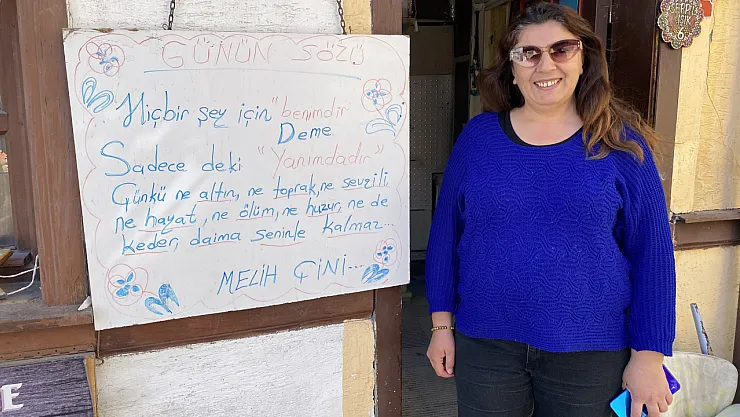 GÜNÜN SÖZÜ
Hiçbir şey için "benimdir"
Deme
Sadece deki "Yanımdadır"
Çünkü ne altın, ne toprak, ne sevgili
ne hayat, ne ölüm, ne huzur, ne de
keder, daima seninle kalmaz...
MELİH ÇİNİ...
E